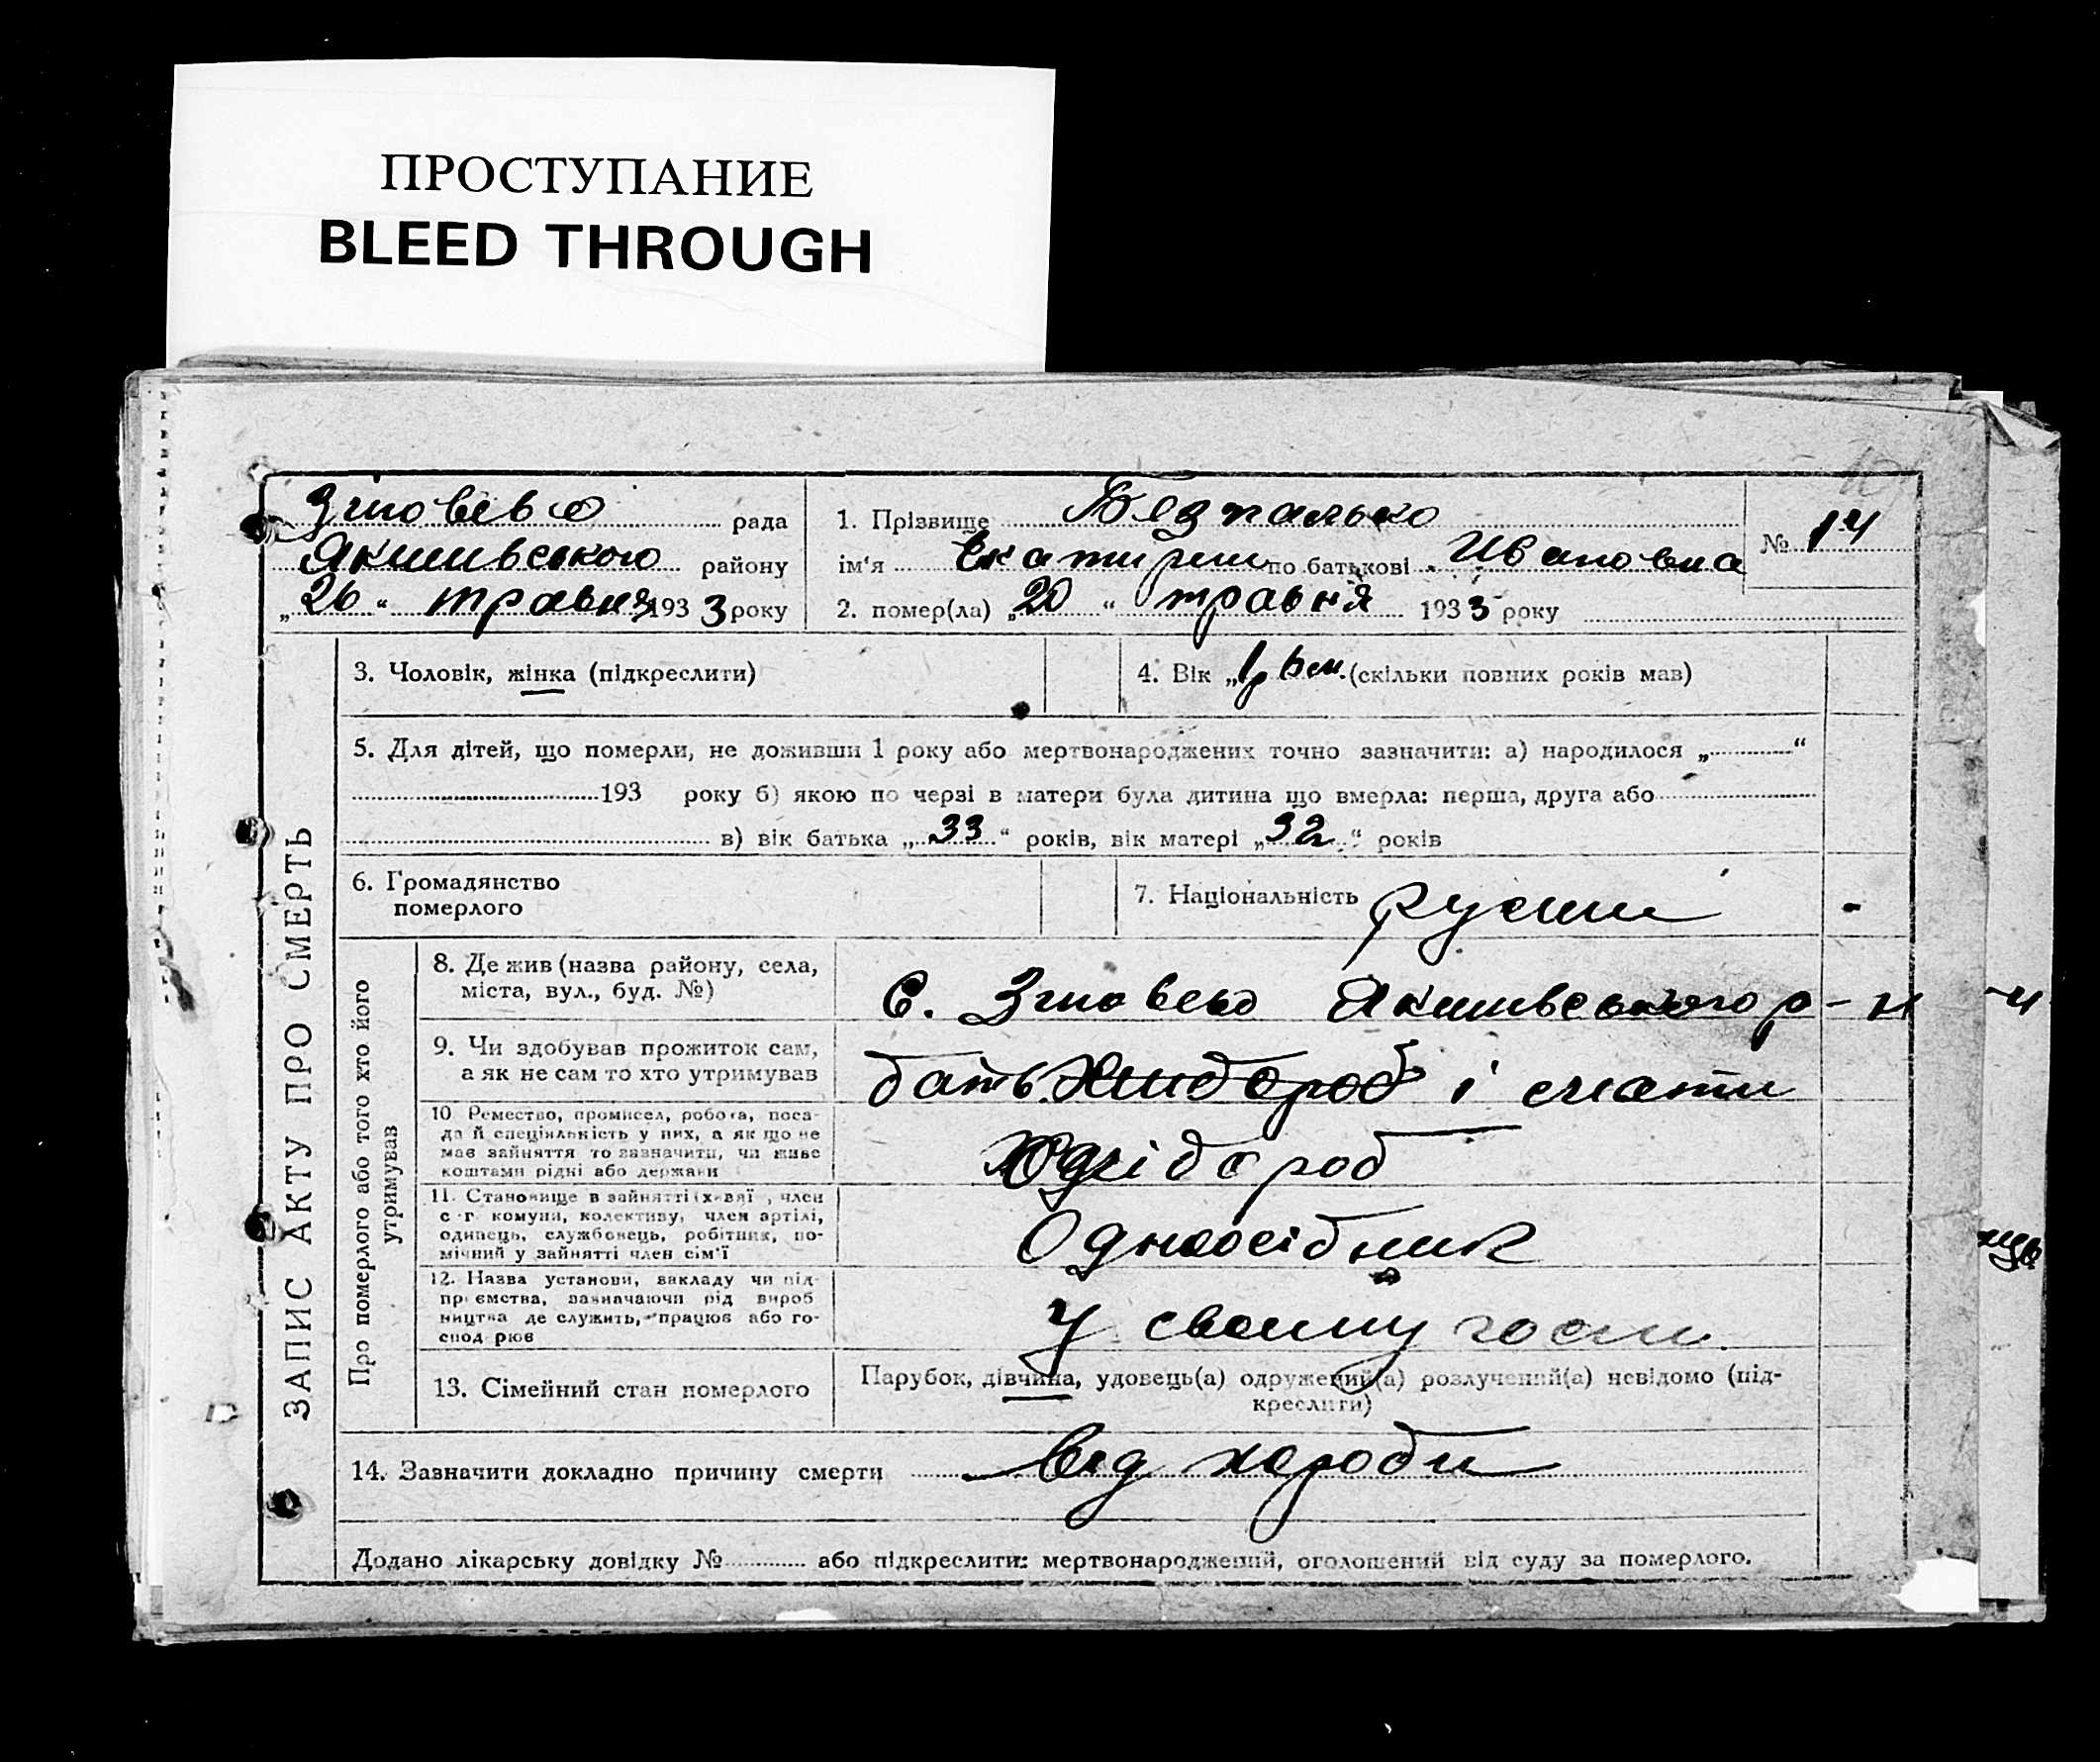 ПРОСТУПАНИЕ
BLEED THROUGH
Зіновєво рада
Якимівського району
„26“ травня 1933 року
1. Прізвище Безпалько
ім'я Екатирин по батькові Ивановна
№ 14
2. помер(ла) „20“ травня 1933 року
ЗАПИС АКТУ ПРО СМЕРТЬ
3. Чоловік, жінка (підкреслити)
4. Вік „ (скільки повних років мав)
5. Для дітей, що померли, не доживши 1 року або мертвонароджених точно зазначити: а) народилося „ “
193 року б) якою по черзі в матери була дитина що вмерла: перша, друга або
в) вік батька „33“ років, вік матері „32“ років
6. Громадянство
померлого
7. Національність русини
Про померлого або того хто його
утримував
8. Де жив (назва району, села,
міста, вул., буд. №)
С. Зіновєво Якимівського р-н
9. Чи здобував прожиток сам,
а як не сам то хто утримував
бать. і смати
10 Ремество, промисел, робота, поса-
да й спеціяльність у них, а як що не
має зайняття то зазначити, чи живе
коштами рідні або держави
Хлібороб
11. Становище в зайнятті (х-вяї , член
с-г. комуни, колективу, член артілі,
одинець, службовець, робітник, по-
мічний у зайнятті член сім'ї
Одноосібник
12. Назва установи, закладу чи під-
приємства, зазначаючи рід вироб
ництва де служить, працює або го-
спод рює
У своєму госп.
13. Сімейний стан померлого
Парубок, дівчина, удовець(а) одружений(а) розлучений(а) невідомо (під-
креслити)
14. Зазначити докладно причину смерти від хароби
Додано лікарську довідку № або підкреслити: мертвонароджений, оголошений від суду за померлого.